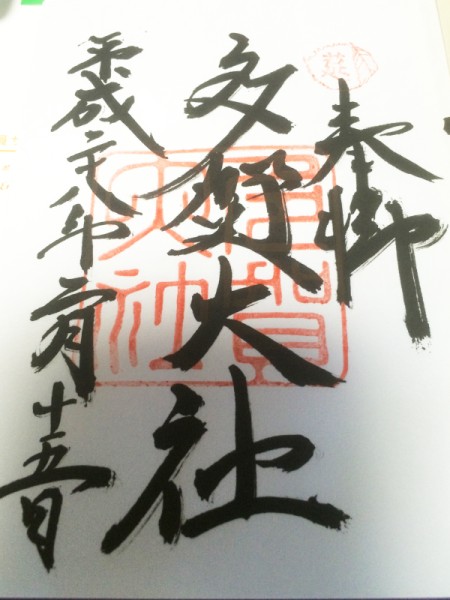 奉拝
多賀大社
平成二八年二月十五日
多賀
大社